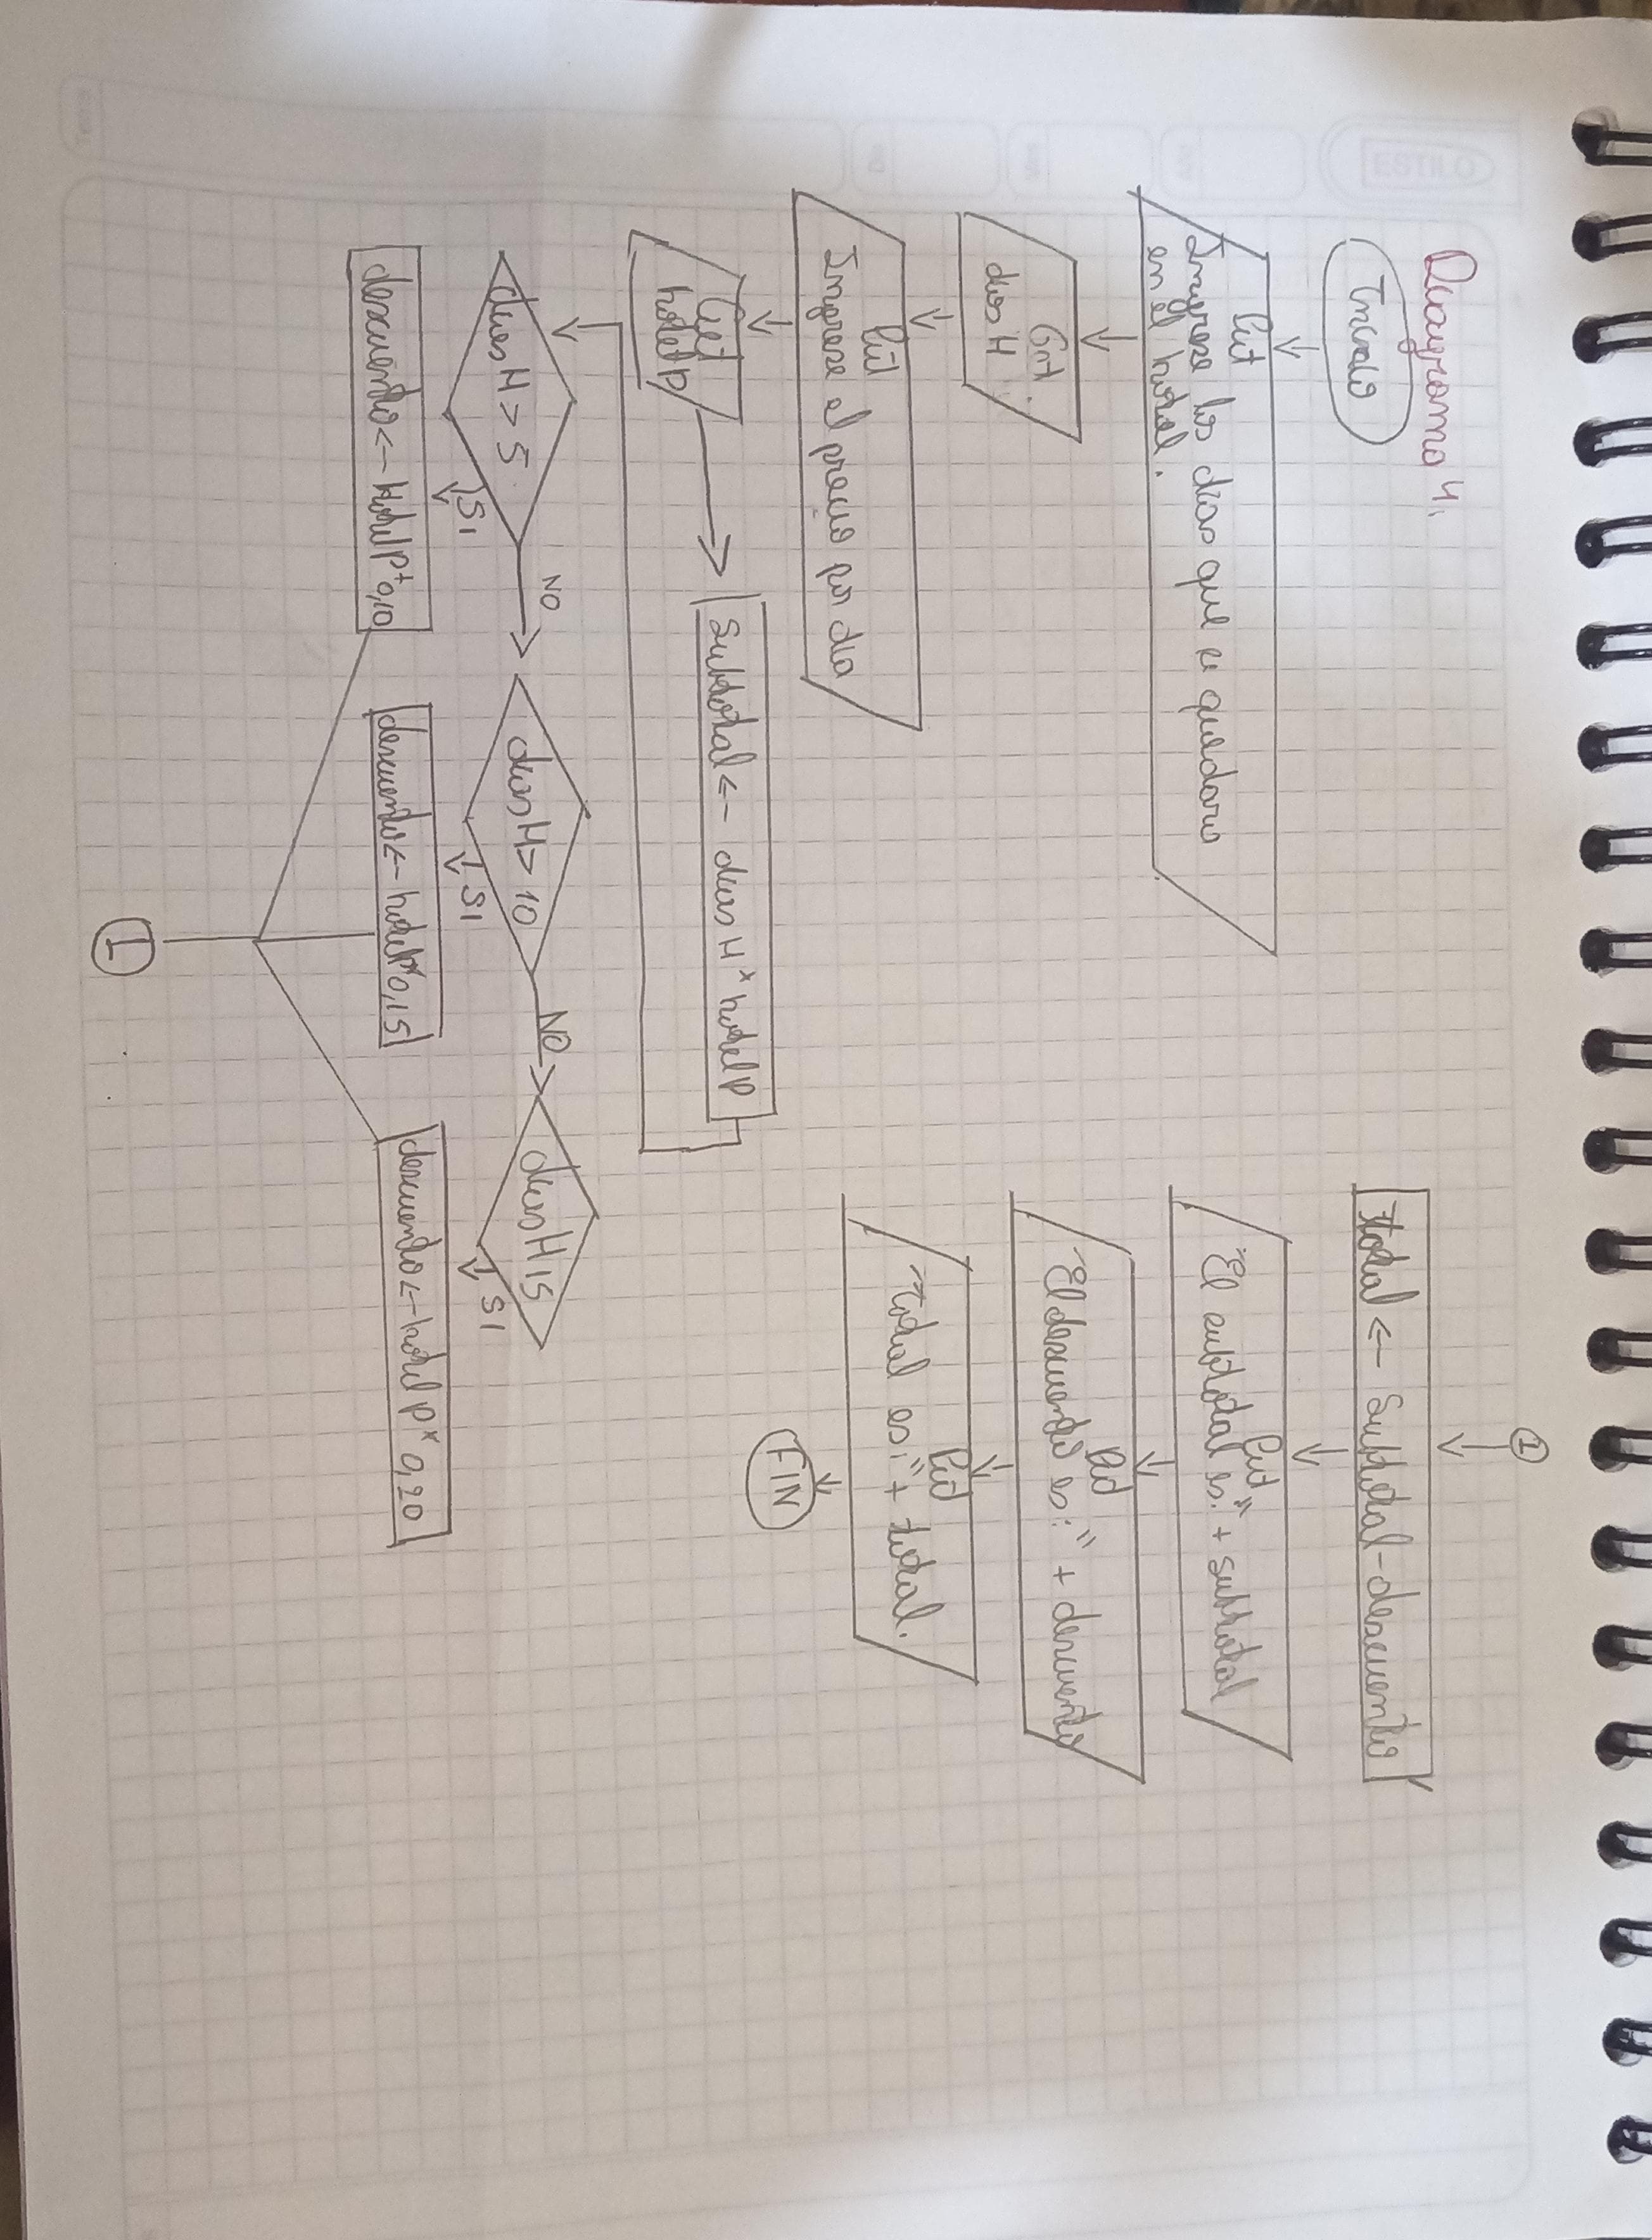 Diagrama 4.
Inicio
Put
Ingrese los dias que se quedara
en el hotel.
Get.
dias H
Put
Ingrese el precio por dia
Get
hotelp
Subtotal <- dias H * hotelp
dias H > 5
NO
SI
dias H > 10
NO
SI
dias H 15
SI
descuento <- Hotel P * 0,10
descuento <- hotelp * 0,15
descuento <- hotel p * 0,20
1
1
total <- Subtotal - descuento
Put
"El subtotal es:" + subtotal
Put
"El descuento es:" + descuento
Put
"total es:" + total.
FIN